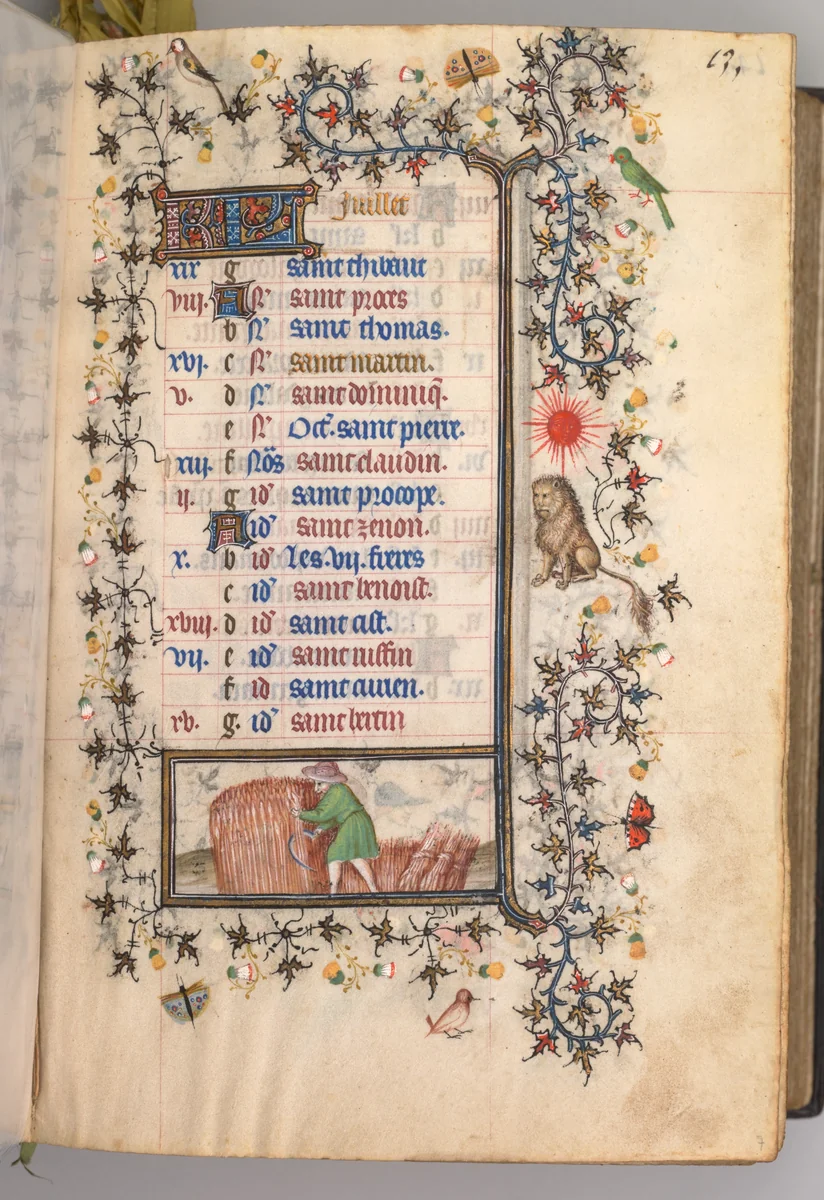 13,
KL Juillet
xix g saint thibaut
viii. A N̄ saint proces
b N̄ saint thomas.
xvi. c N̄ saint martin.
v. d N̄ saint dominiq̄.
e N̄ Oct̄. saint pierre.
xiii. f Nōs saint claudin.
ii. g id᾿ saint procope.
A id᾿ saint zenon.
x. b id᾿ les .vij. freres
c id᾿ saint benoist.
xviii. d id᾿ saint cist.
vij. e id᾿ saint ruffin
f id saint auren.
xv. g. id᾿ saint bertin
7